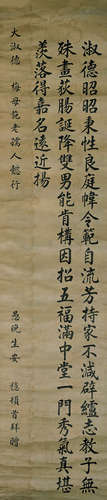 淑德昭昭秉性良庭幃令範自流芳持家不減辟纑志教子無
殊畫荻腸誕降雙男能肯構因招五福滿中堂一門秀氣真堪
羨落得嘉名遠近揚
大淑德 梅母范老孺人懿行
愚晚生安 穩楨首拜贈